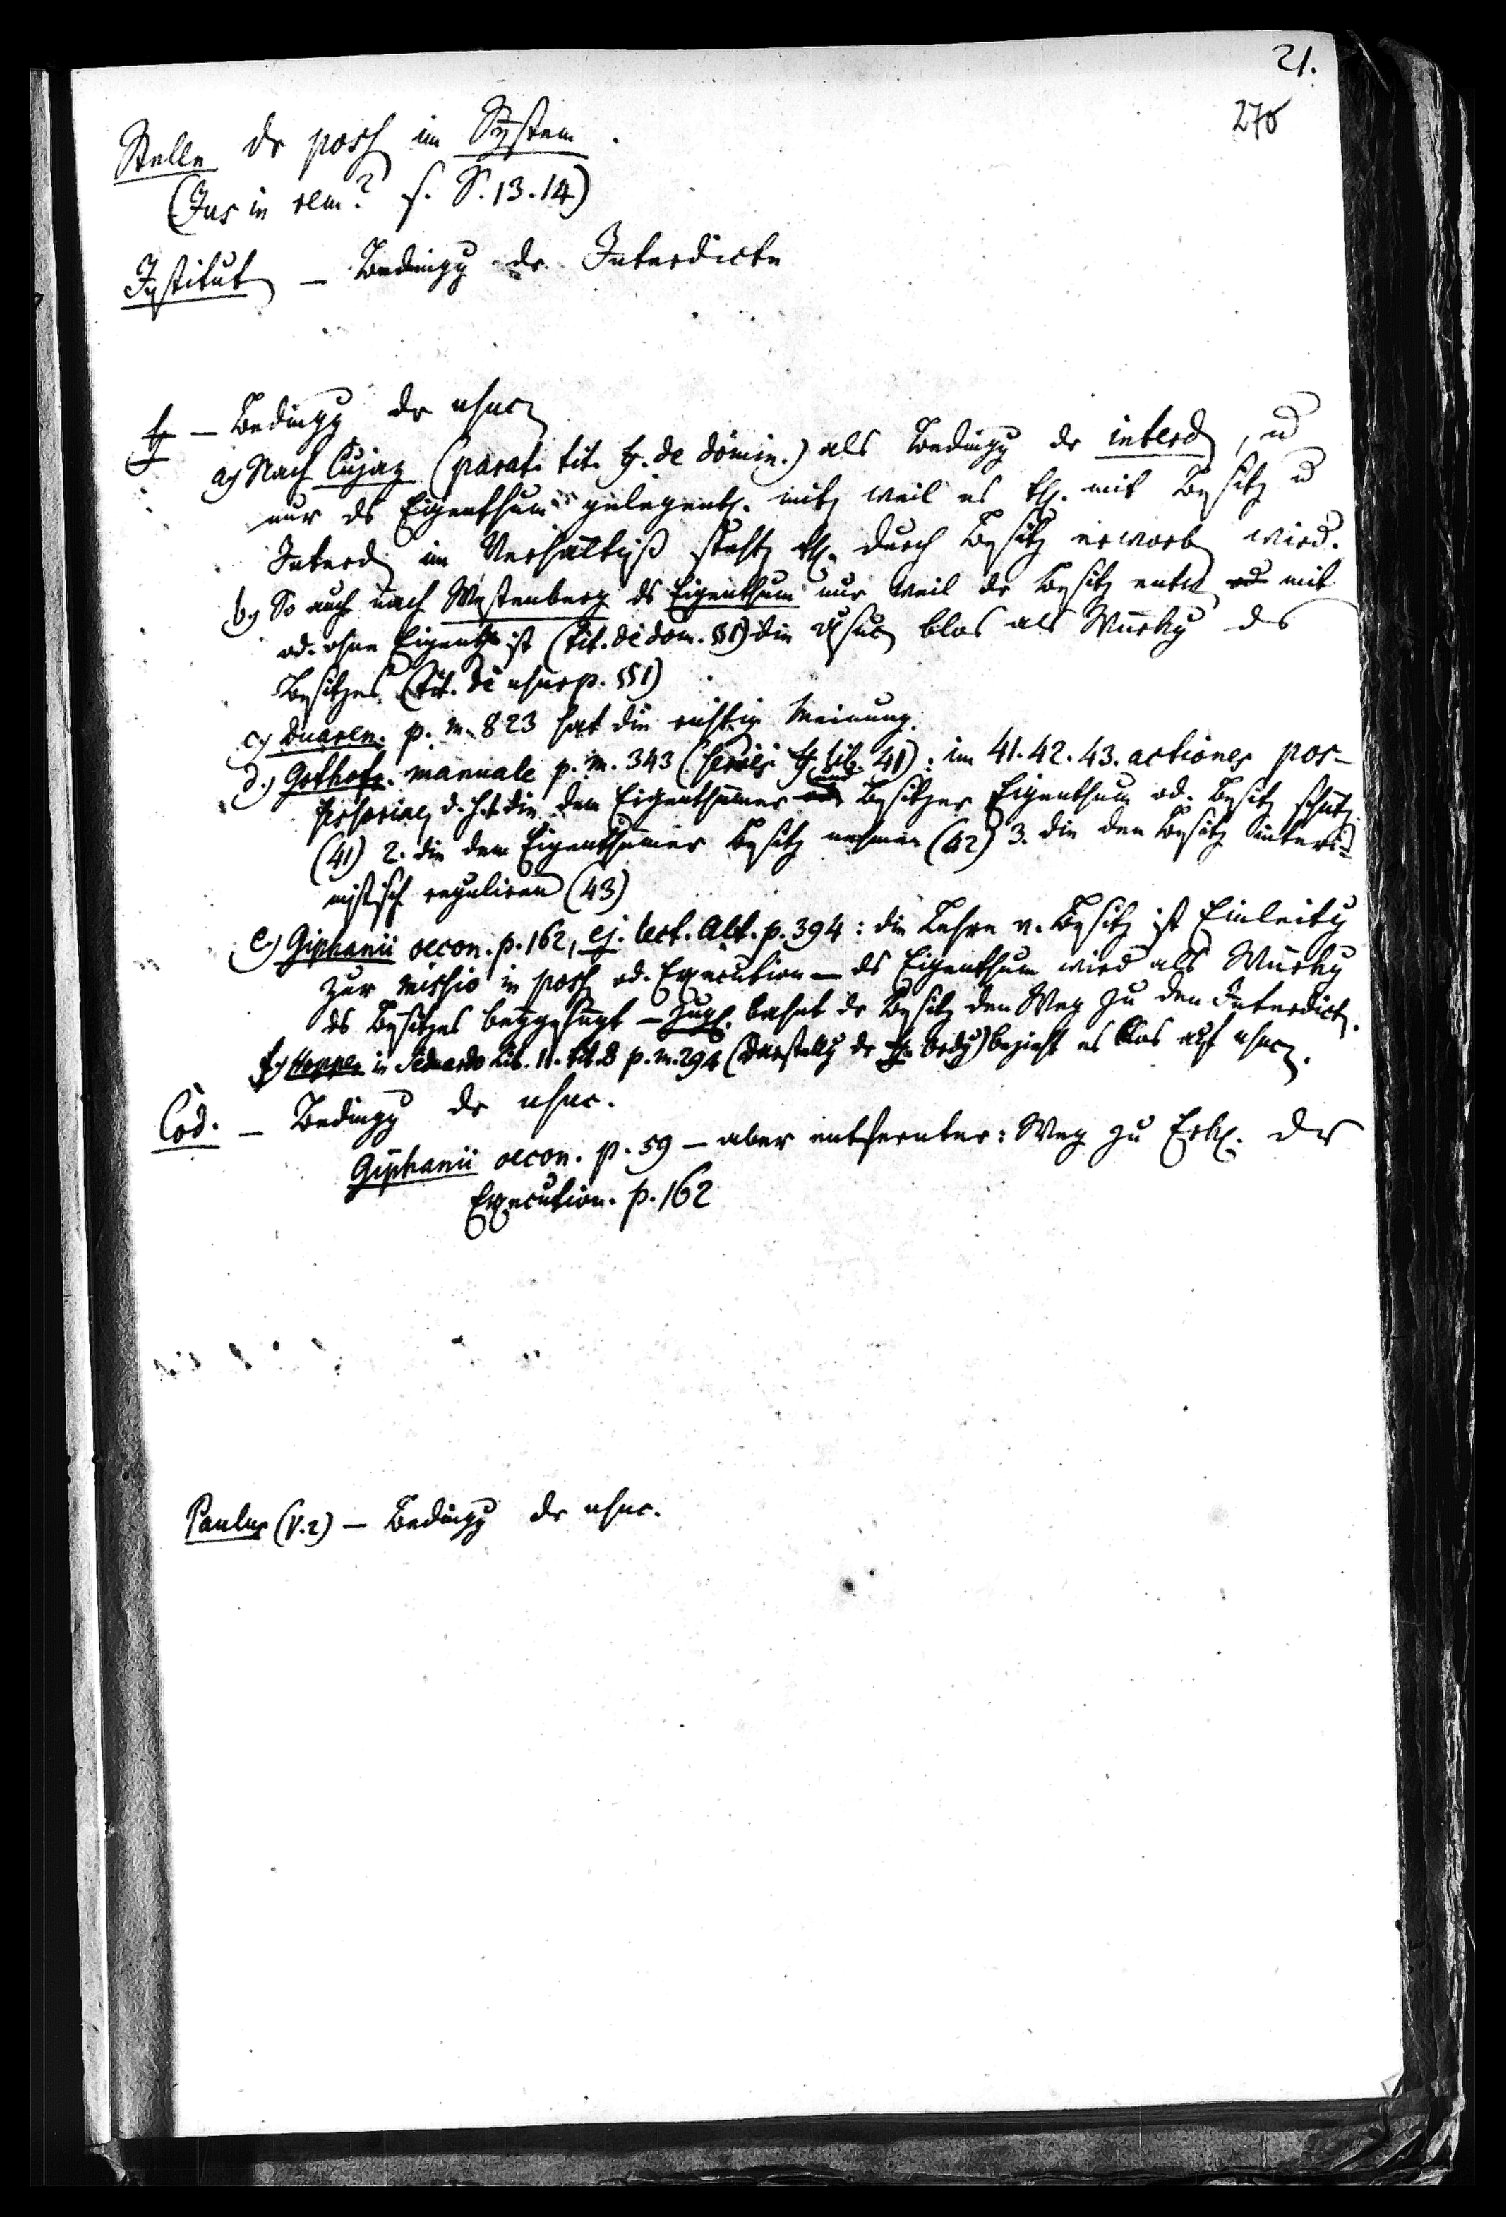 21.
270
Stelle dr poss im System.
(Jus in rem? s. S. 13. 14)
Institut – Bedingg dr Interdicte
ff – Bedingg dr usuc
a) Nach Cujaz (parat. tit. ff. de domin.) als Bedingg dr interd, u
nur ds Eigenthum gelegentl. mit weil es thl. mit Besitz u
Interd im Verhältniß steht, thl. durch Besitz erworb wird.
b) So auch nach Westenberg ds Eigenthum nur weil dr Besitz entw mit
od. ohne Eigenth ist (tit. de dom. §§1) die Usuc blos als Würkg des
Besitzes (tit. de usurp. §§1)
c) Duaren. p. m. 823 hat die richtige Meinung.
d.) Gothofr. manuale p. m. 343 (series ff. lib. 41): im 41. 42. 43. actiones pos-
sessoriae, d. h. 1. die dem Eigenthümer und Besitzer Eigenthum od. Besitz schütz
(41) 2. die dem Eigenthümer Besitz nehmen (42) 3. die den Besitz interi-
mistisch reguliren (43)
e) Giphanii oecon. p. 162, ej. lect. Alt. p. 394: die Lehre v. Besitz ist Einleitg
zur missio in poss od. Execution – ds Eigenthum wird als Würkg
ds Besitzes beygefügt – zugl. bahnt dr Besitz den Weg zu den Interdict.
f) Hoppe in Lib. 11. tit. p. m. 294 (Darstellg dr ff. Ordg) bezieht es blos auf usuc.
Cod. – Bedingg dr usuc.
Giphanii oecon. p. 59 – aber entfernter: Weg zu Erkl. der
Execution. p. 162
Paulus (V. 2) – Bedingg dr usuc.